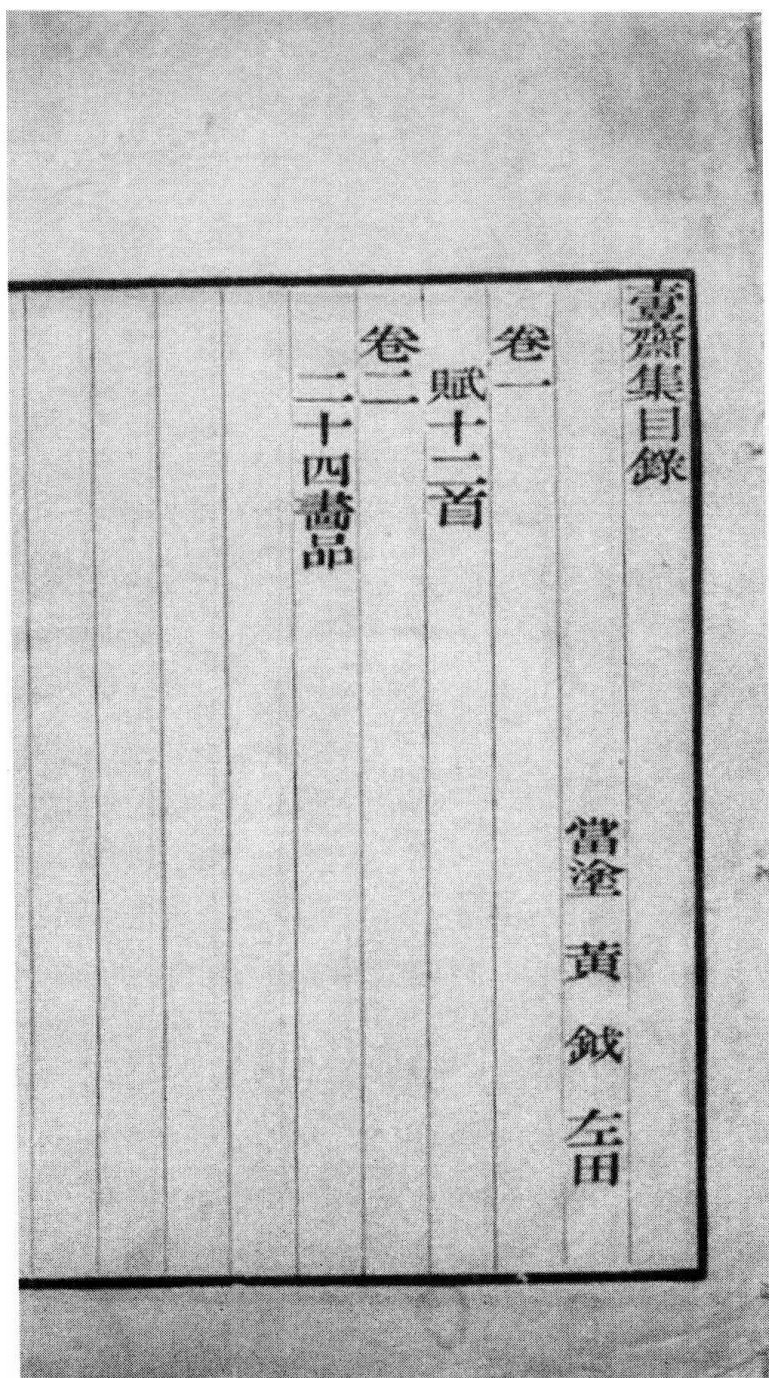 壹齋集目錄
當塗 黃 鉞 左田
卷一
賦十二首
卷二
二十四畫品